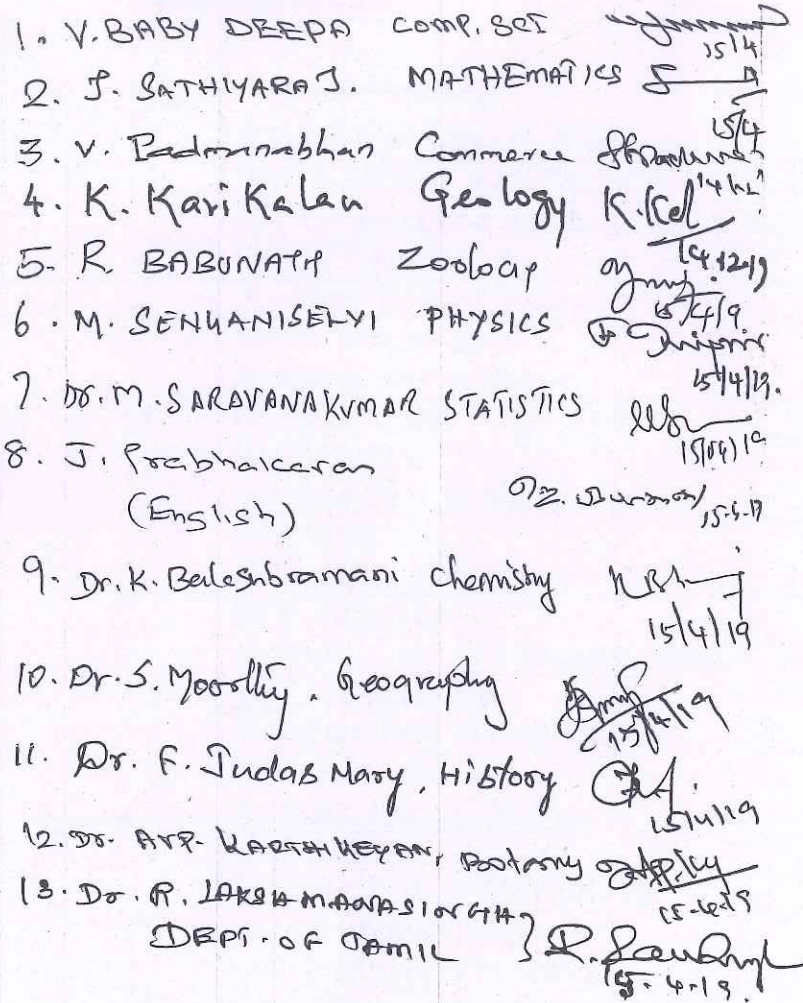 1. V. BABY DEEPA COMP. SCI
15/4
2. J. SATHIYARAJ. MATHEMATICS
15/4
3. V. Padmanabhan Commerce
4. K. Kari Kalan Geology K.Kal
5. R. BABUNATH Zoology
15/4/9
6. M. SENGANISELVI PHYSICS
15/4/19.
7. Dr. M. SARAVANAKUMAR STATISTICS
15/04/19
8. J. Prabhakaran
(English)
9. Dr. K. Balasubramani Chemistry
15/4/19
10. Dr. S. Moorthy. Geography
15/4/19
11. Dr. F. Judas Mary, History
15/4/19
12. Dr. Ar.P. KARTHIKEYAN, Botany
15-4-19
13. Dr. R. LAKSHMANASINGH
DEPT. OF TAMIL
15-4-19.